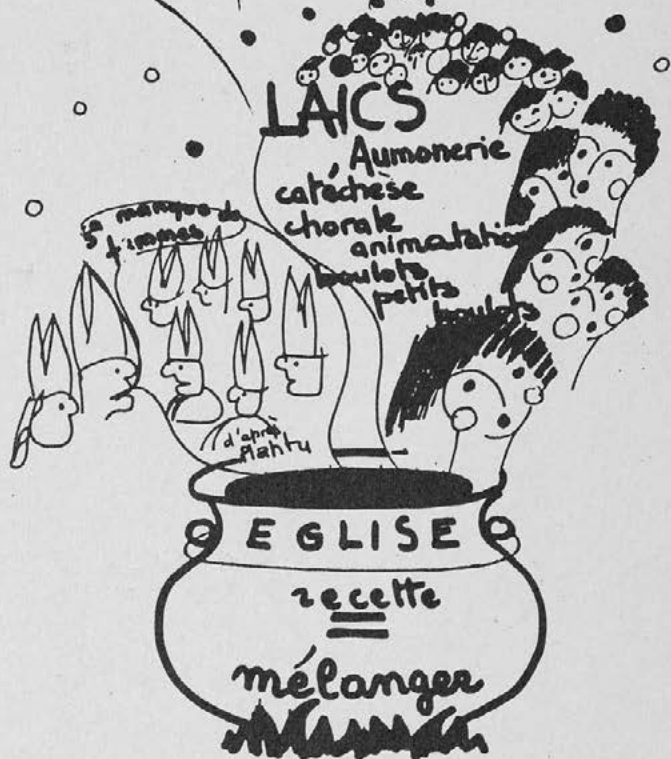 LAICS
Aumonerie
catéchèse
chorale
animatation
boulots
petits
boulots
ça manque de
femmes
d'après
Plantu
EGLISE
recette
=
mélanger